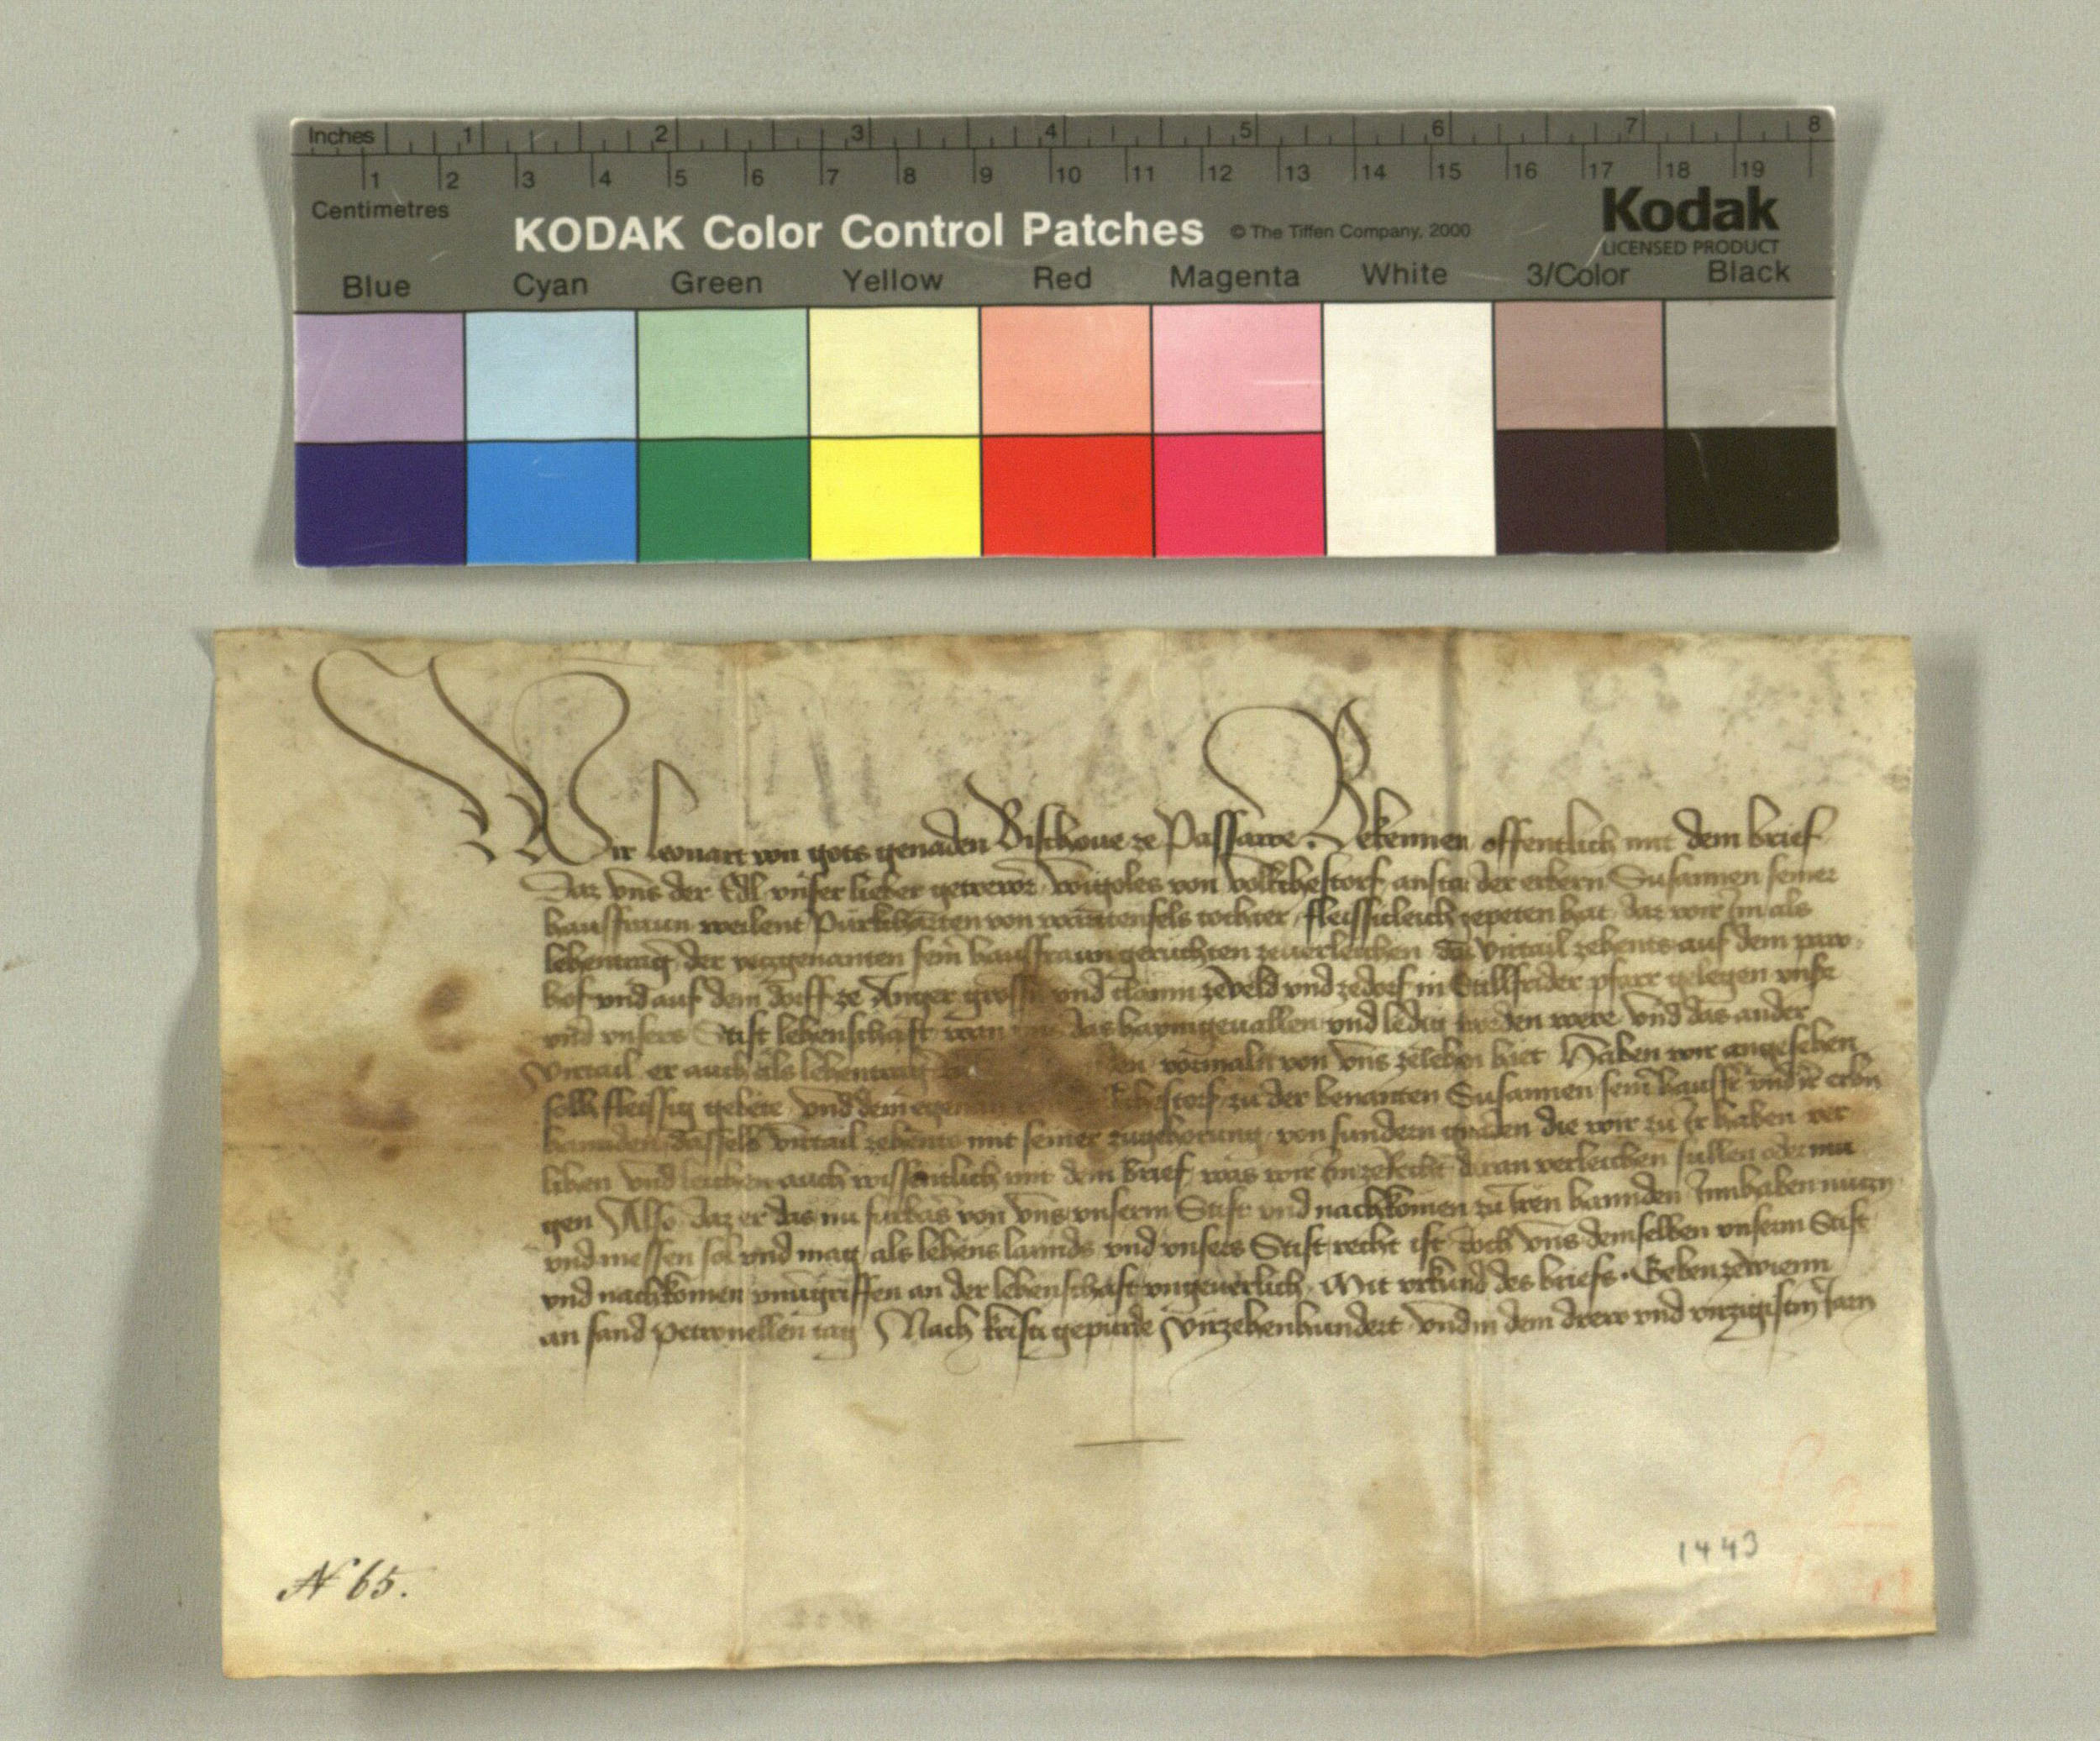 Inches 1 2 3 4 5 6 7 8
1 2 3 4 5 6 7 8 9 10 11 12 13 14 15 16 17 18 19
Centimetres
KODAK Color Control Patches © The Tiffen Company, 2000 Kodak
LICENSED PRODUCT
Blue Cyan Green Yellow Red Magenta White 3/Color Black
Wir leonart von gots genaden Bischoue ze Passawe. Bekennen offentlich mit dem brief
Daz vns der Edl vnser lieber getrewer von anstat der erbern Susannen seiner
hausfraun weilent von tochter fleissicleich gepeten hat daz wir Im als
lehentrag der seiner hausfraun geruchten zeuerleichen virtail zehents auf dem paw
hof vnd auf dem dorff ze Anger grossn vnd clainn zeveld vnd zedorf in Stillfrider pfarr gelegen vnsr
vnd vnsers Stift lehenschaft wan das haymgeuallen vnd ledig worden were vnd das ander
virtail er auch als lehentrag vormaln von vns zelehen hiet Haben wir angesehen
solh fleissig gebete vnd dem zu der benanten Susannen seiner vnd ir erbn
hannden dasselb virtail zehents mit seiner zugehorung von sundern gnaden die wir zu Ir haben ver
lihen vnd leichen auch wissentlich mit dem brief was wir Im zerecht daran verleichen sullen oder mu
gen Also daz er das nu furbas von vns vnserm Stift vnd nachkomen zu Iren hannden Innhaben nuczn
vnd niessen sol vnd mag als lehens lannds vnd vnsers Stift recht ist doch vns demselben vnserm Stift
vnd nachkomen vnuergriffen an der lehenschaft vngeuerlich. Mit vrkund des briefs. Geben ze wienn
an sand Petronellen tag Nach kristi gepurde virzehenhundert vnd in dem drew vnd virzigistm Jarn
N 65.
1443